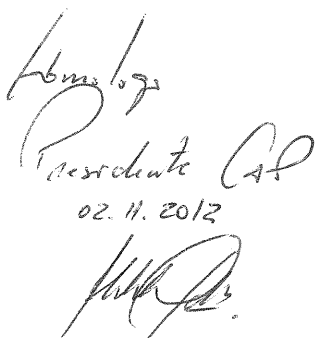 Homologo
Presidente CAP
02.11.2012